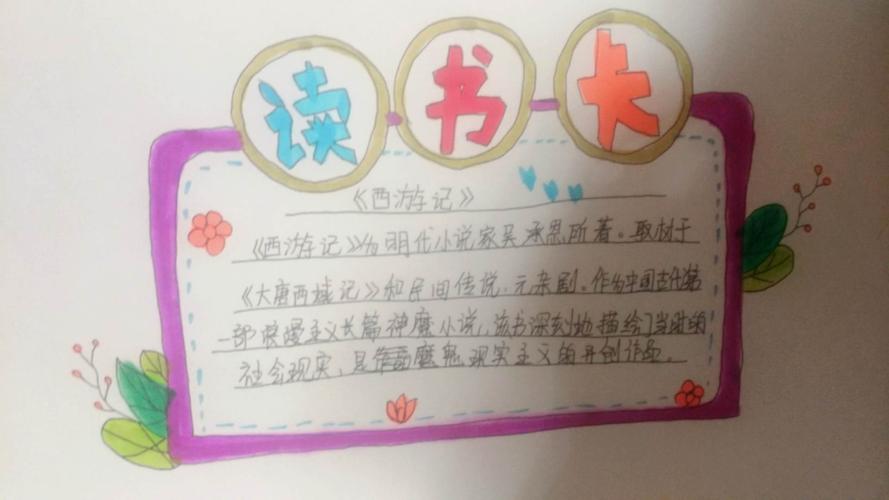 读书卡
《西游记》
《西游记》为明代小说家吴承恩所著。取材于
《大唐西域记》和民间传说、元杂剧。作为中国古代第
一部浪漫主义长篇神魔小说，该书深刻地描绘了当时的
社会现实，是魔幻现实主义的开创作品。